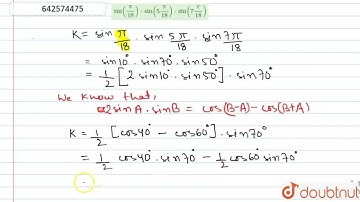 642574475
sin(π/18) · sin(5π/18) · sin(7π/18)
K = sin π/18 . sin 5π/18 . sin 7π/18
= sin10° . sin70° . sin50°
= 1/2 [2 sin10° . sin50°] . sin70°
We know that,
2 sinA . sinB = cos(B-A) - cos(B+A)
K = 1/2 [cos40° - cos60°] . sin70°
= 1/2 cos40° . sin70° - 1/2 cos60° sin70°
doubtnut